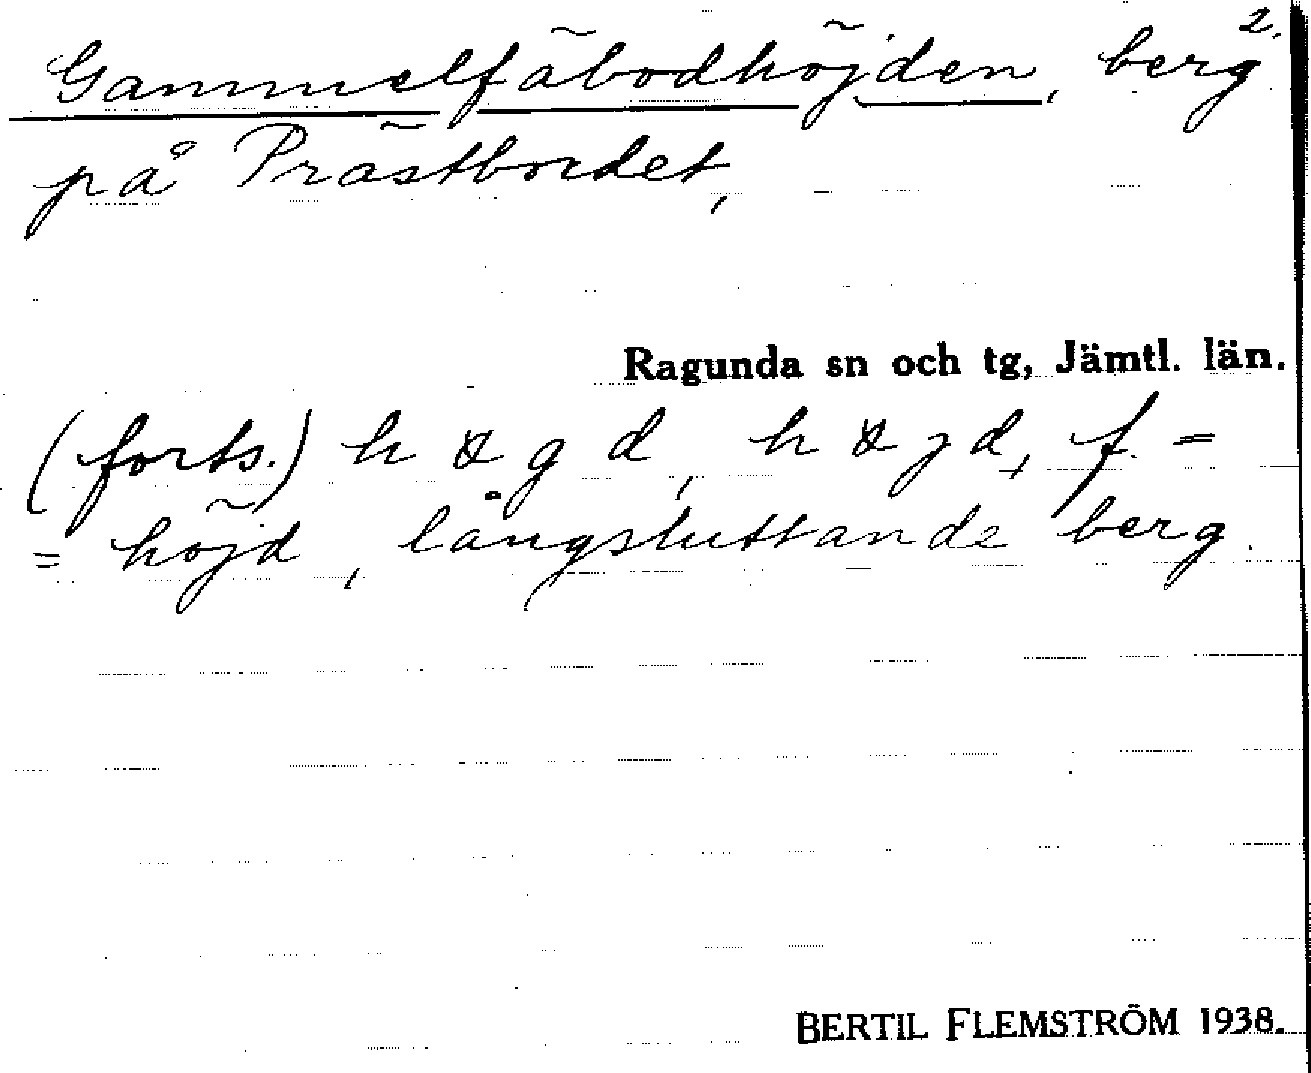 2.
Gammelfäbodhöjden, berg
på Prästbordet,
Ragunda sn och tg, Jämtl. län.
(forts.) h g d, h j d, f. =
= höjd, långsluttande berg.
BERTIL FLEMSTRÖM 1938.